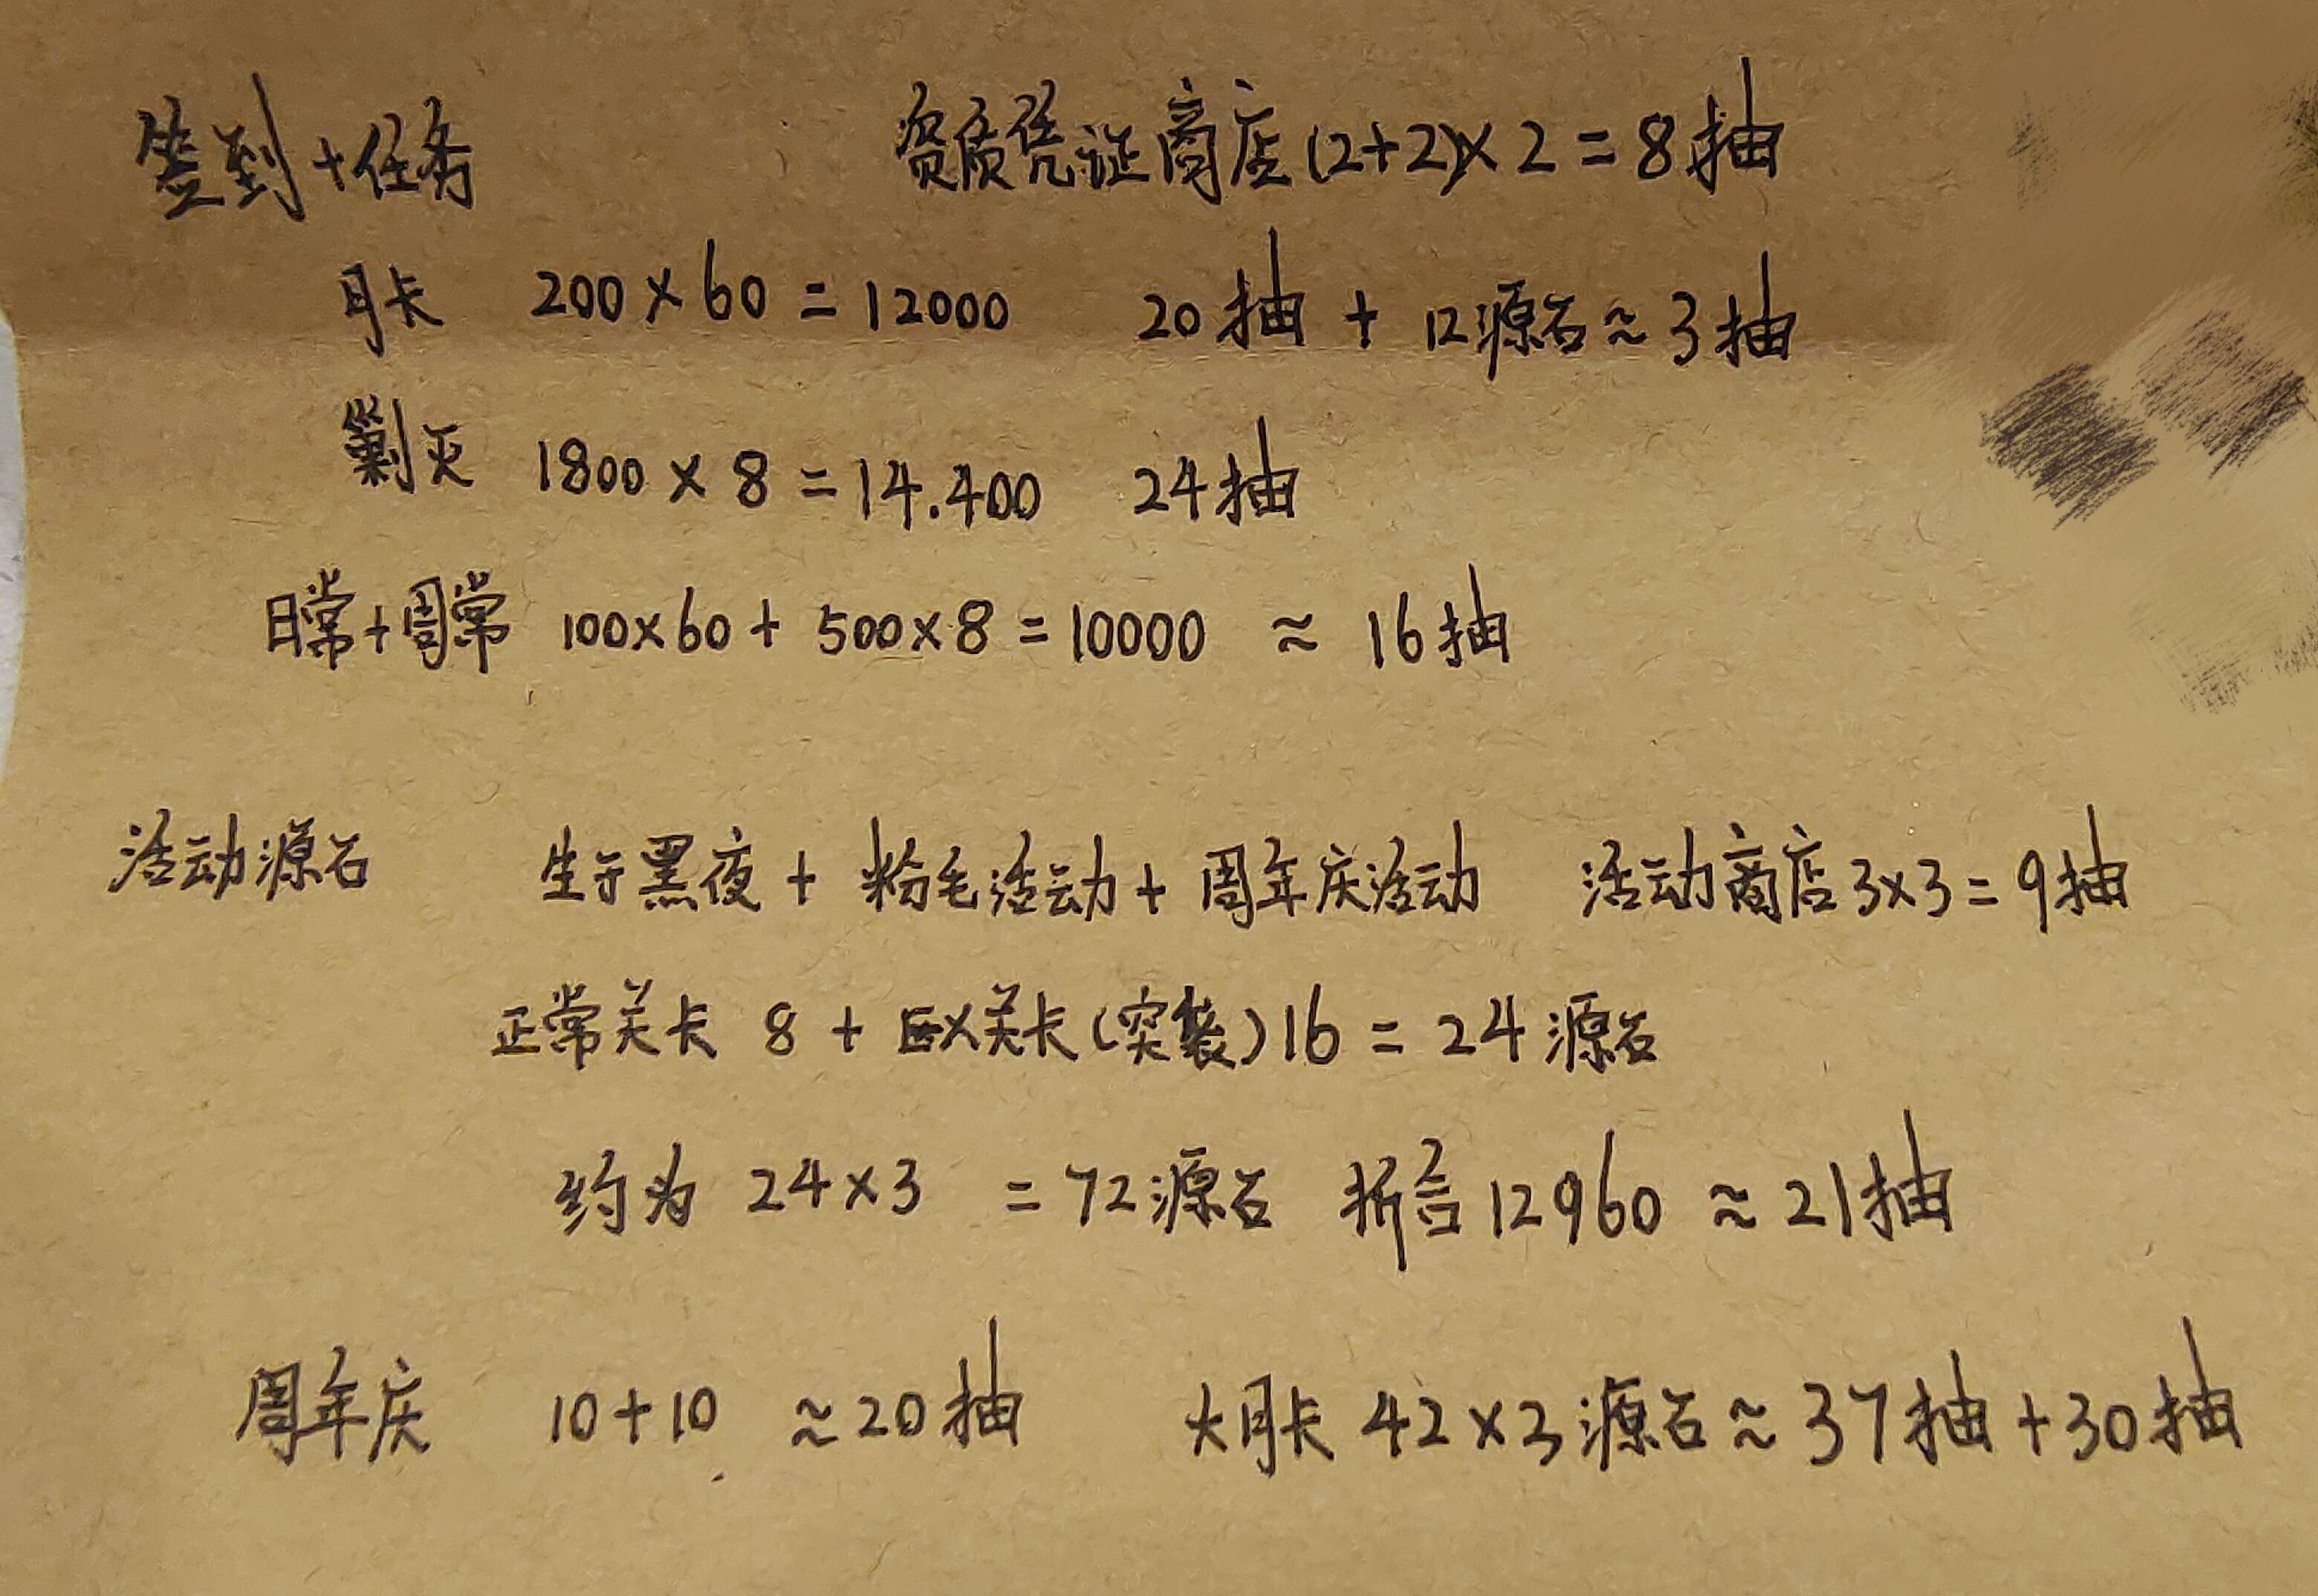 签到+任务 资质凭证商店(2+2)×2=8抽
月卡 200×60=12000 20抽 + 12源石≈3抽
剿灭 1800×8=14.400 24抽
日常+周常 100×60+500×8=10000 ≈ 16抽
活动源石 生于黑夜 + 粉毛活动 + 周年庆活动 活动商店3×3=9抽
正常关卡 8 + EX关卡(突袭)16 = 24源石
约为 24×3 = 72源石 折合12960 ≈21抽
周年庆 10+10 ≈20抽 大月卡 42×3源石≈37抽+30抽